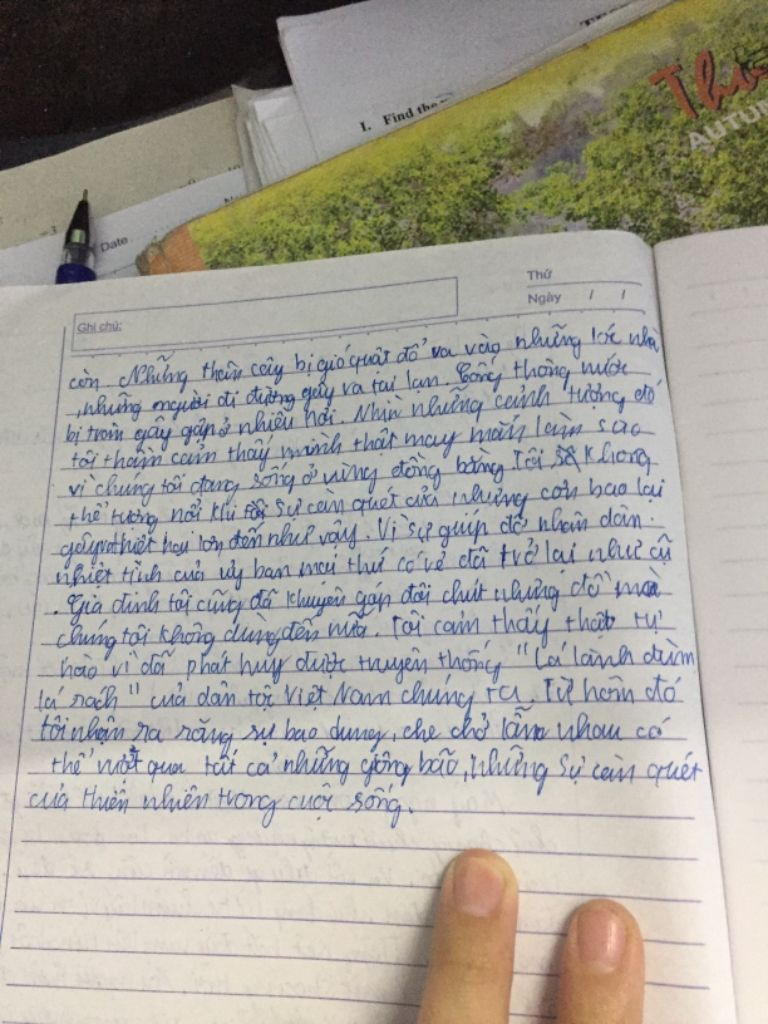 I. Find the
Thi
AUTUM
Date
Thứ
Ngày / /
Ghi chú:
còn. Những thân cây bị gió quật đổ va vào những lóc nhà
, những người đi đường gây va tai lạn. Cống thông nước
bị tràn gây gập ở nhiều nơi. Nhìn những cảnh tượng đó
tôi thầm cảm thấy mình thật may mắn làm sao
vì chúng tôi đang sống ở vùng đồng bằng. Tôi không
thể tượng nổi khi sự càn quét của những cơn bão lại
gây thiệt hại lớn đến như vậy. Vì sự giúp đỡ nhân dân
nhiệt tình của ủy ban mọi thứ có vẻ đã trở lại như cũ
. Gia đình tôi cũng đã khuyên góp đôi chút những đồ mà
chúng tôi không dùng đến nữa. Tôi cảm thấy thật tự
hào vì đã phát huy được truyền thống "lá lành đùm
lá rách" của dân tộc Việt Nam chúng ta. Từ hôm đó
tôi nhận ra rằng sự bao dung, che chở lẫn nhau có
thể vượt qua tất cả những giông bão, những sự càn quét
của thiên nhiên trong cuộc sống.